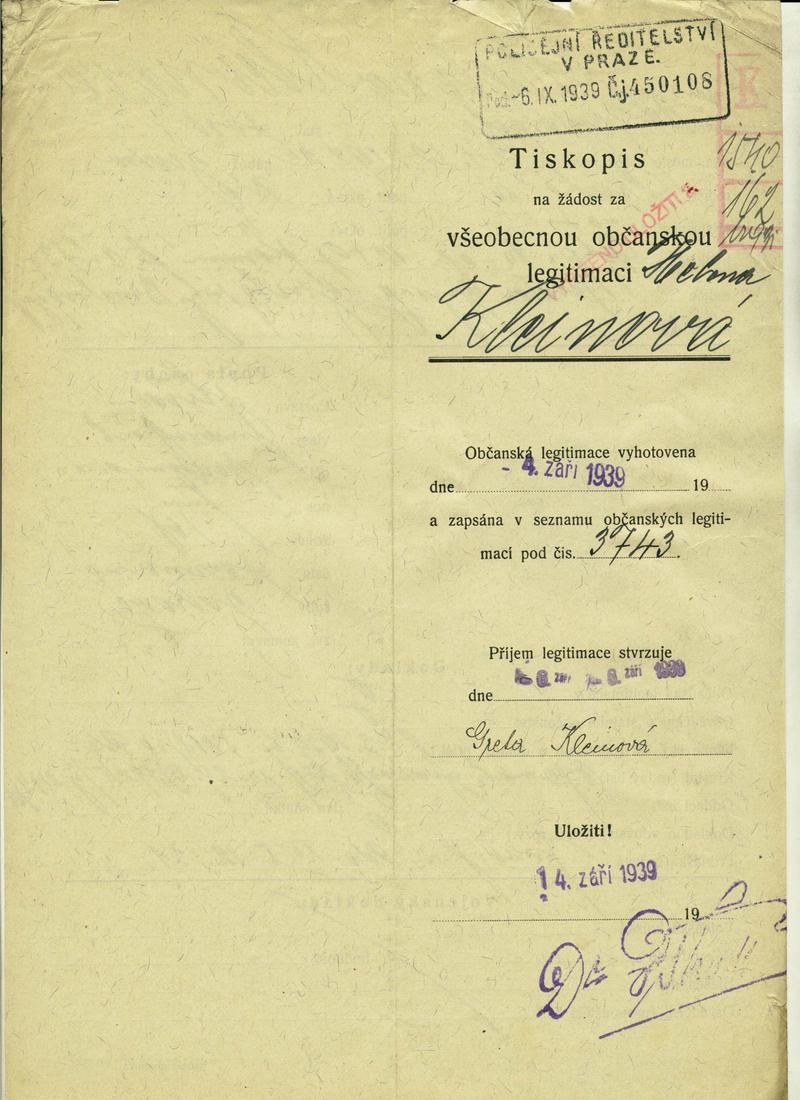 POLICEJNÍ ŘEDITELSTVÍ
V PRAZE.
Pod. -6. IX. 1939 Čj. 450108
K
1540
162
Tiskopis
na žádost za
všeobecnou občanskou
legitimaci Helena
Kleinová
Občanská legitimace vyhotovena
- 4. září 1939
dne 19
a zapsána v seznamu občanských legiti-
mací pod čís. 3743.
Příjem legitimace stvrzuje
6. září 1939
dne
Greta Kleinová
Uložiti!
14. září 1939
19
Dr